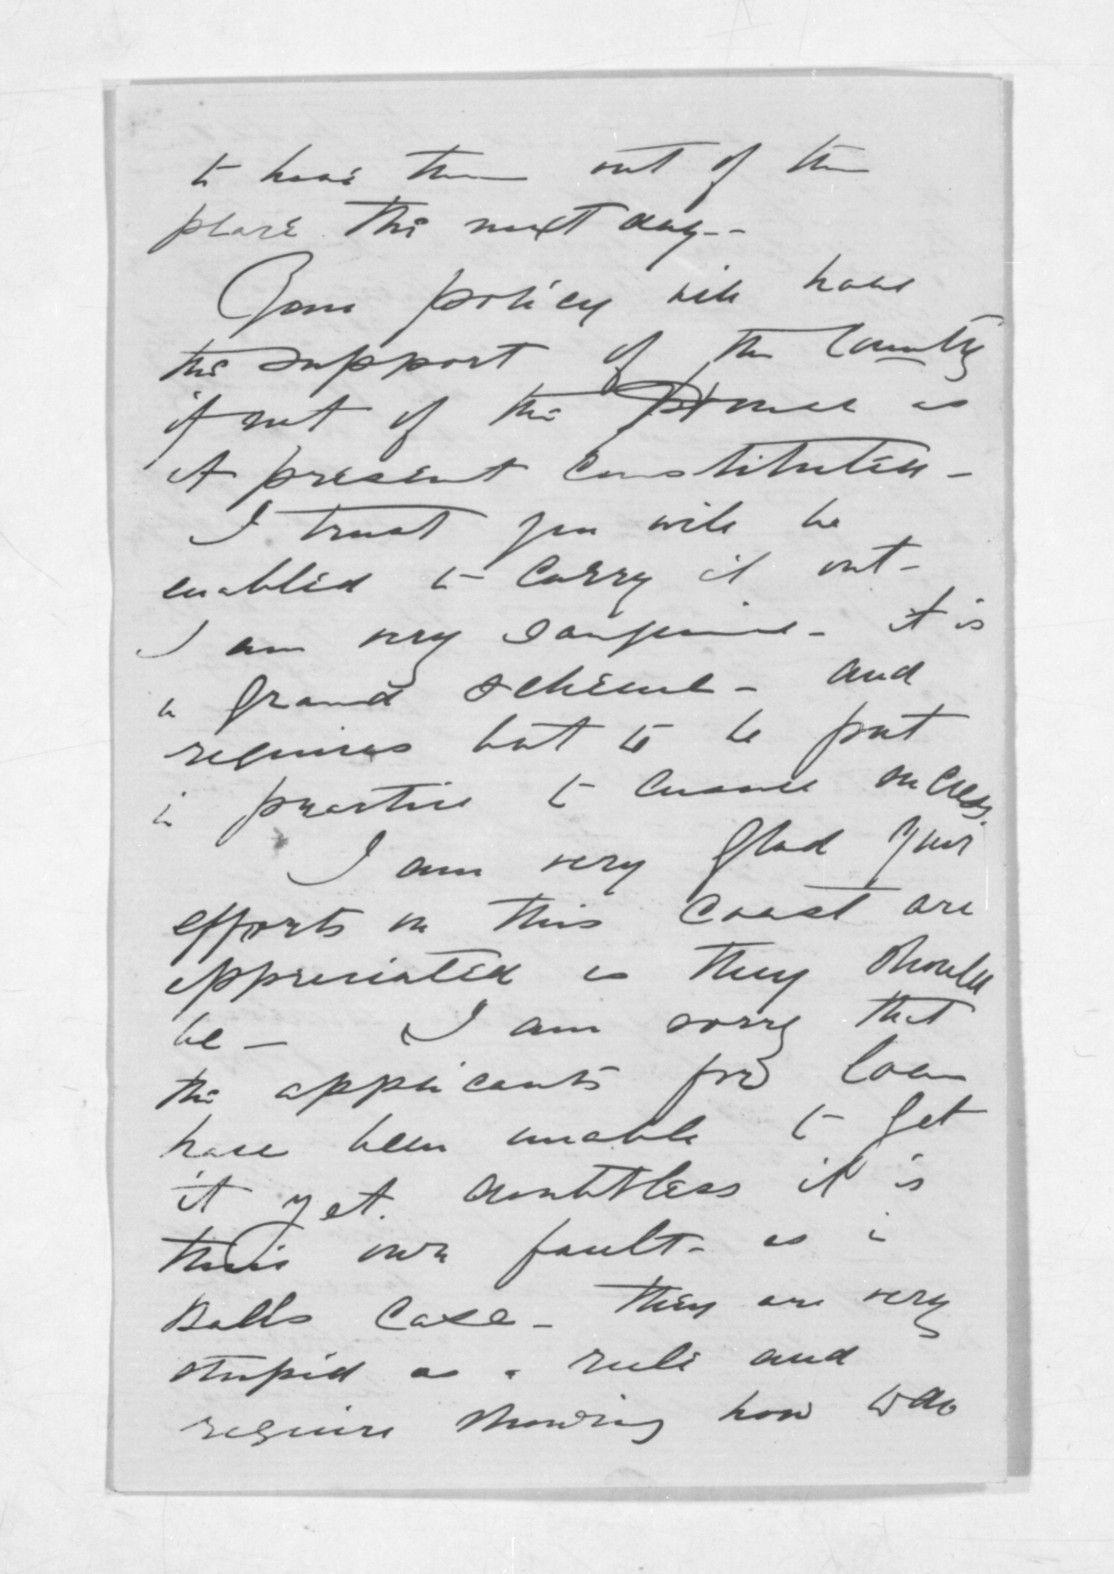 to have them out of the
place the next day--
Your policy will have
the support of the County
if not of the House as
at present constituted -
I trust you will be
enabled to carry it out -
I am very sanguine - it is
a grand scheme - and
requires but to be put
in practice to ensure success.
I am very glad your
efforts on this Coast are
appreciated as they should
be - I am sorry that
the applicants for loan
have been unable to get
it yet. doubtless it is
their own fault - as in
Balls Case - they are very
stupid as a rule and
require showing how to do